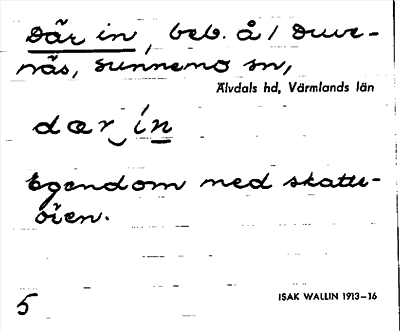 Där in, beb. å / Duve-
näs, Sunnemo sn,
Älvdals hd, Värmlands län
dær in
Egendom med skatte-
öien.
ISAK WALLIN 1913–16
5